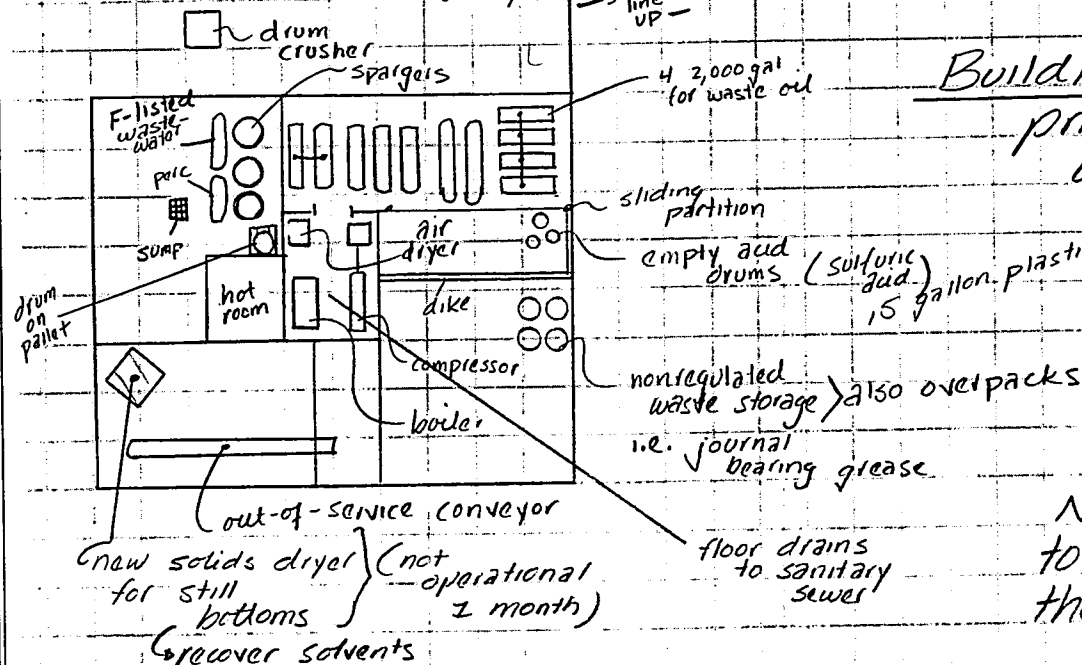 line
UP -
drum
crusher
spargers
4 2,000 gal
for waste oil
F-listed
waste-
water
perc
sump
drum
on
pallet
hot
room
air
dryer
dike
compressor
boiler
sliding
partition
empty acid
drums (sulfuric
acid)
15 gallon plasti
nonregulated
waste storage > also overpacks
i.e. journal
bearing grease
floor drains
to sanitary
sewer
out-of-service conveyor
new solids dryer
for still
bottoms
(not
operational
1 month)
recover solvents
Buildi
pri
to
the